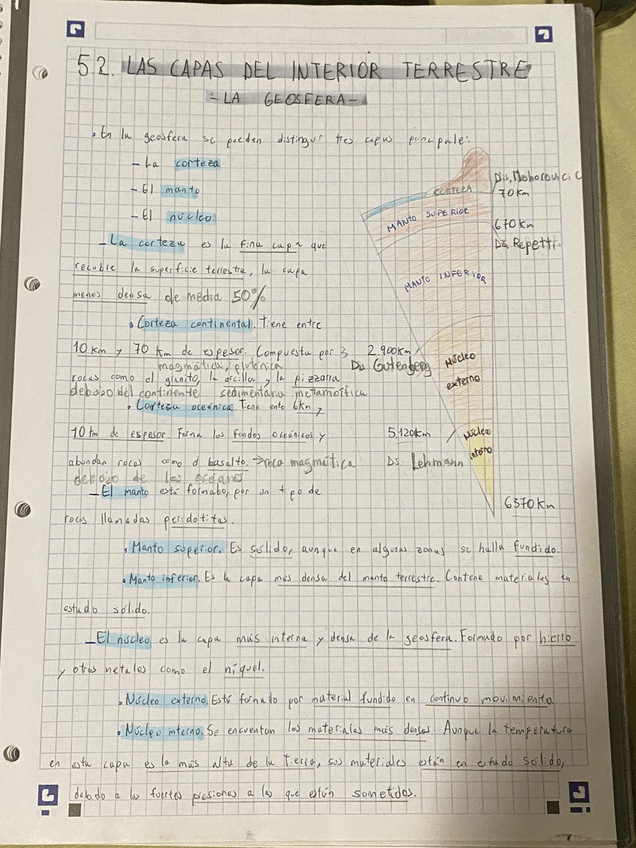 5.2. LAS CAPAS DEL INTERIOR TERRESTRE
- LA GEOSFERA -
• En la geosfera se pueden distinguir tres capas principale:
- La corteza
- El manto
- El núcleo
- La corteza es la fina capa que
recubre la superficie terrestre, la capa
menos densa de media 50%
• Corteza continental. Tiene entre
10 km y 70 km de espesor. Compuesta por 3
magmática, plutónica
rocas como el granito, la arcilla y la pizarra
debajo del continente sedimentaria metamórfica
• Corteza oceánica. Tiene entre 6km y
10 km de espesor. Forma los fondos oceánicos y
abundan rocas como el basalto. → roca magmática
debajo de los océano
- El manto está formado, por un tipo de
rocas llamadas peridotitas.
• Manto superior. Es sólido, aunque en algunas zonas se halla fundido.
• Manto inferior. Es la capa más densa del manto terrestre. Contiene materiales en
estado sólido.
- El núcleo es la capa más interna y densa de la geosfera. Formado por hierro
y otros metales como el níquel.
• Núcleo externo. Está formado por material fundido en continuo movimiento
• Núcleo interno. Se encuentan los materiales más densos. Aunque la temperatura
en esta capa es la más alta de la Tierra, sus materiales están en estado sólido,
debido a las fuertes presiones a las que están sometidos.
CORTEZA
Dis. Mohorovicic
70 km
MANTO SUPERIOR
670 km
Dis. Repetti
MANTO INFERIOR
2.900 km
Dis Gutenberg
Núcleo
externo
5.120km
Dis. Lehmann
Núcleo
interno
6370 Km